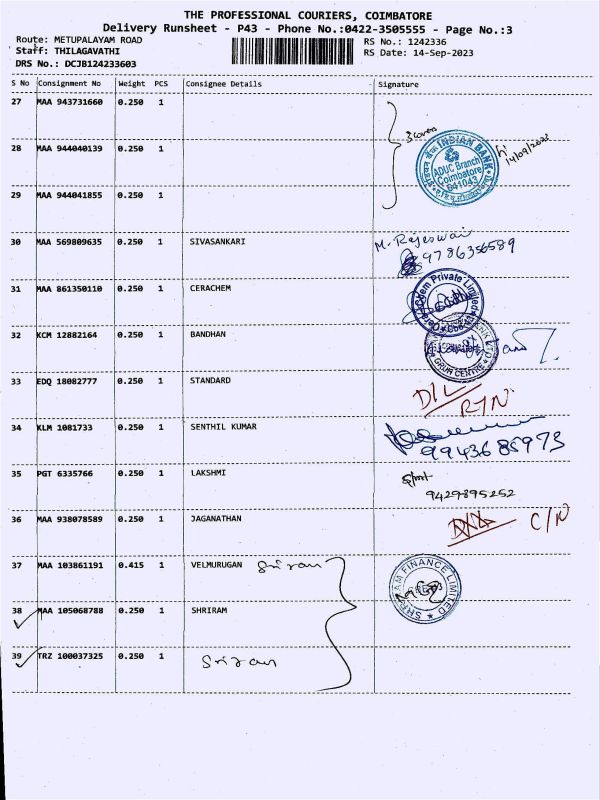 THE PROFESSIONAL COURIERS, COIMBATORE
Delivery Runsheet - P43 - Phone No.:0422-3505555 - Page No.:3
Route: METUPALAYAM ROAD
RS No.: 1242336
Staff: THILAGAVATHI
RS Date: 14-Sep-2023
DRS No.: DCJB124233603
S No Consignment No Weight PCS Consignee Details Signature
27 MAA 943731660 0.250 1
3 covers
28 MAA 944040139 0.250 1
INDIAN BANK
ADUC Branch
Coimbatore
641043
14/09/2023
29 MAA 944041855 0.250 1
30 MAA 569809635 0.250 1 SIVASANKARI M. Rajeswari
9786356589
31 MAA 861350110 0.250 1 CERACHEM
Cera Chem Private Limited
32 KCM 12882164 0.250 1 BANDHAN
33 EDQ 18082777 0.250 1 STANDARD D/L
RTN
34 KLM 1081733 0.250 1 SENTHIL KUMAR
9943685973
35 PGT 6335766 0.250 1 LAKSHMI
9429895252
36 MAA 938078589 0.250 1 JAGANATHAN C/N
37 MAA 103861191 0.415 1 VELMURUGAN Sriram
SHRIRAM FINANCE LIMITED
38 MAA 105068788 0.250 1 SHRIRAM
39 TRZ 100037325 0.250 1 Sriram